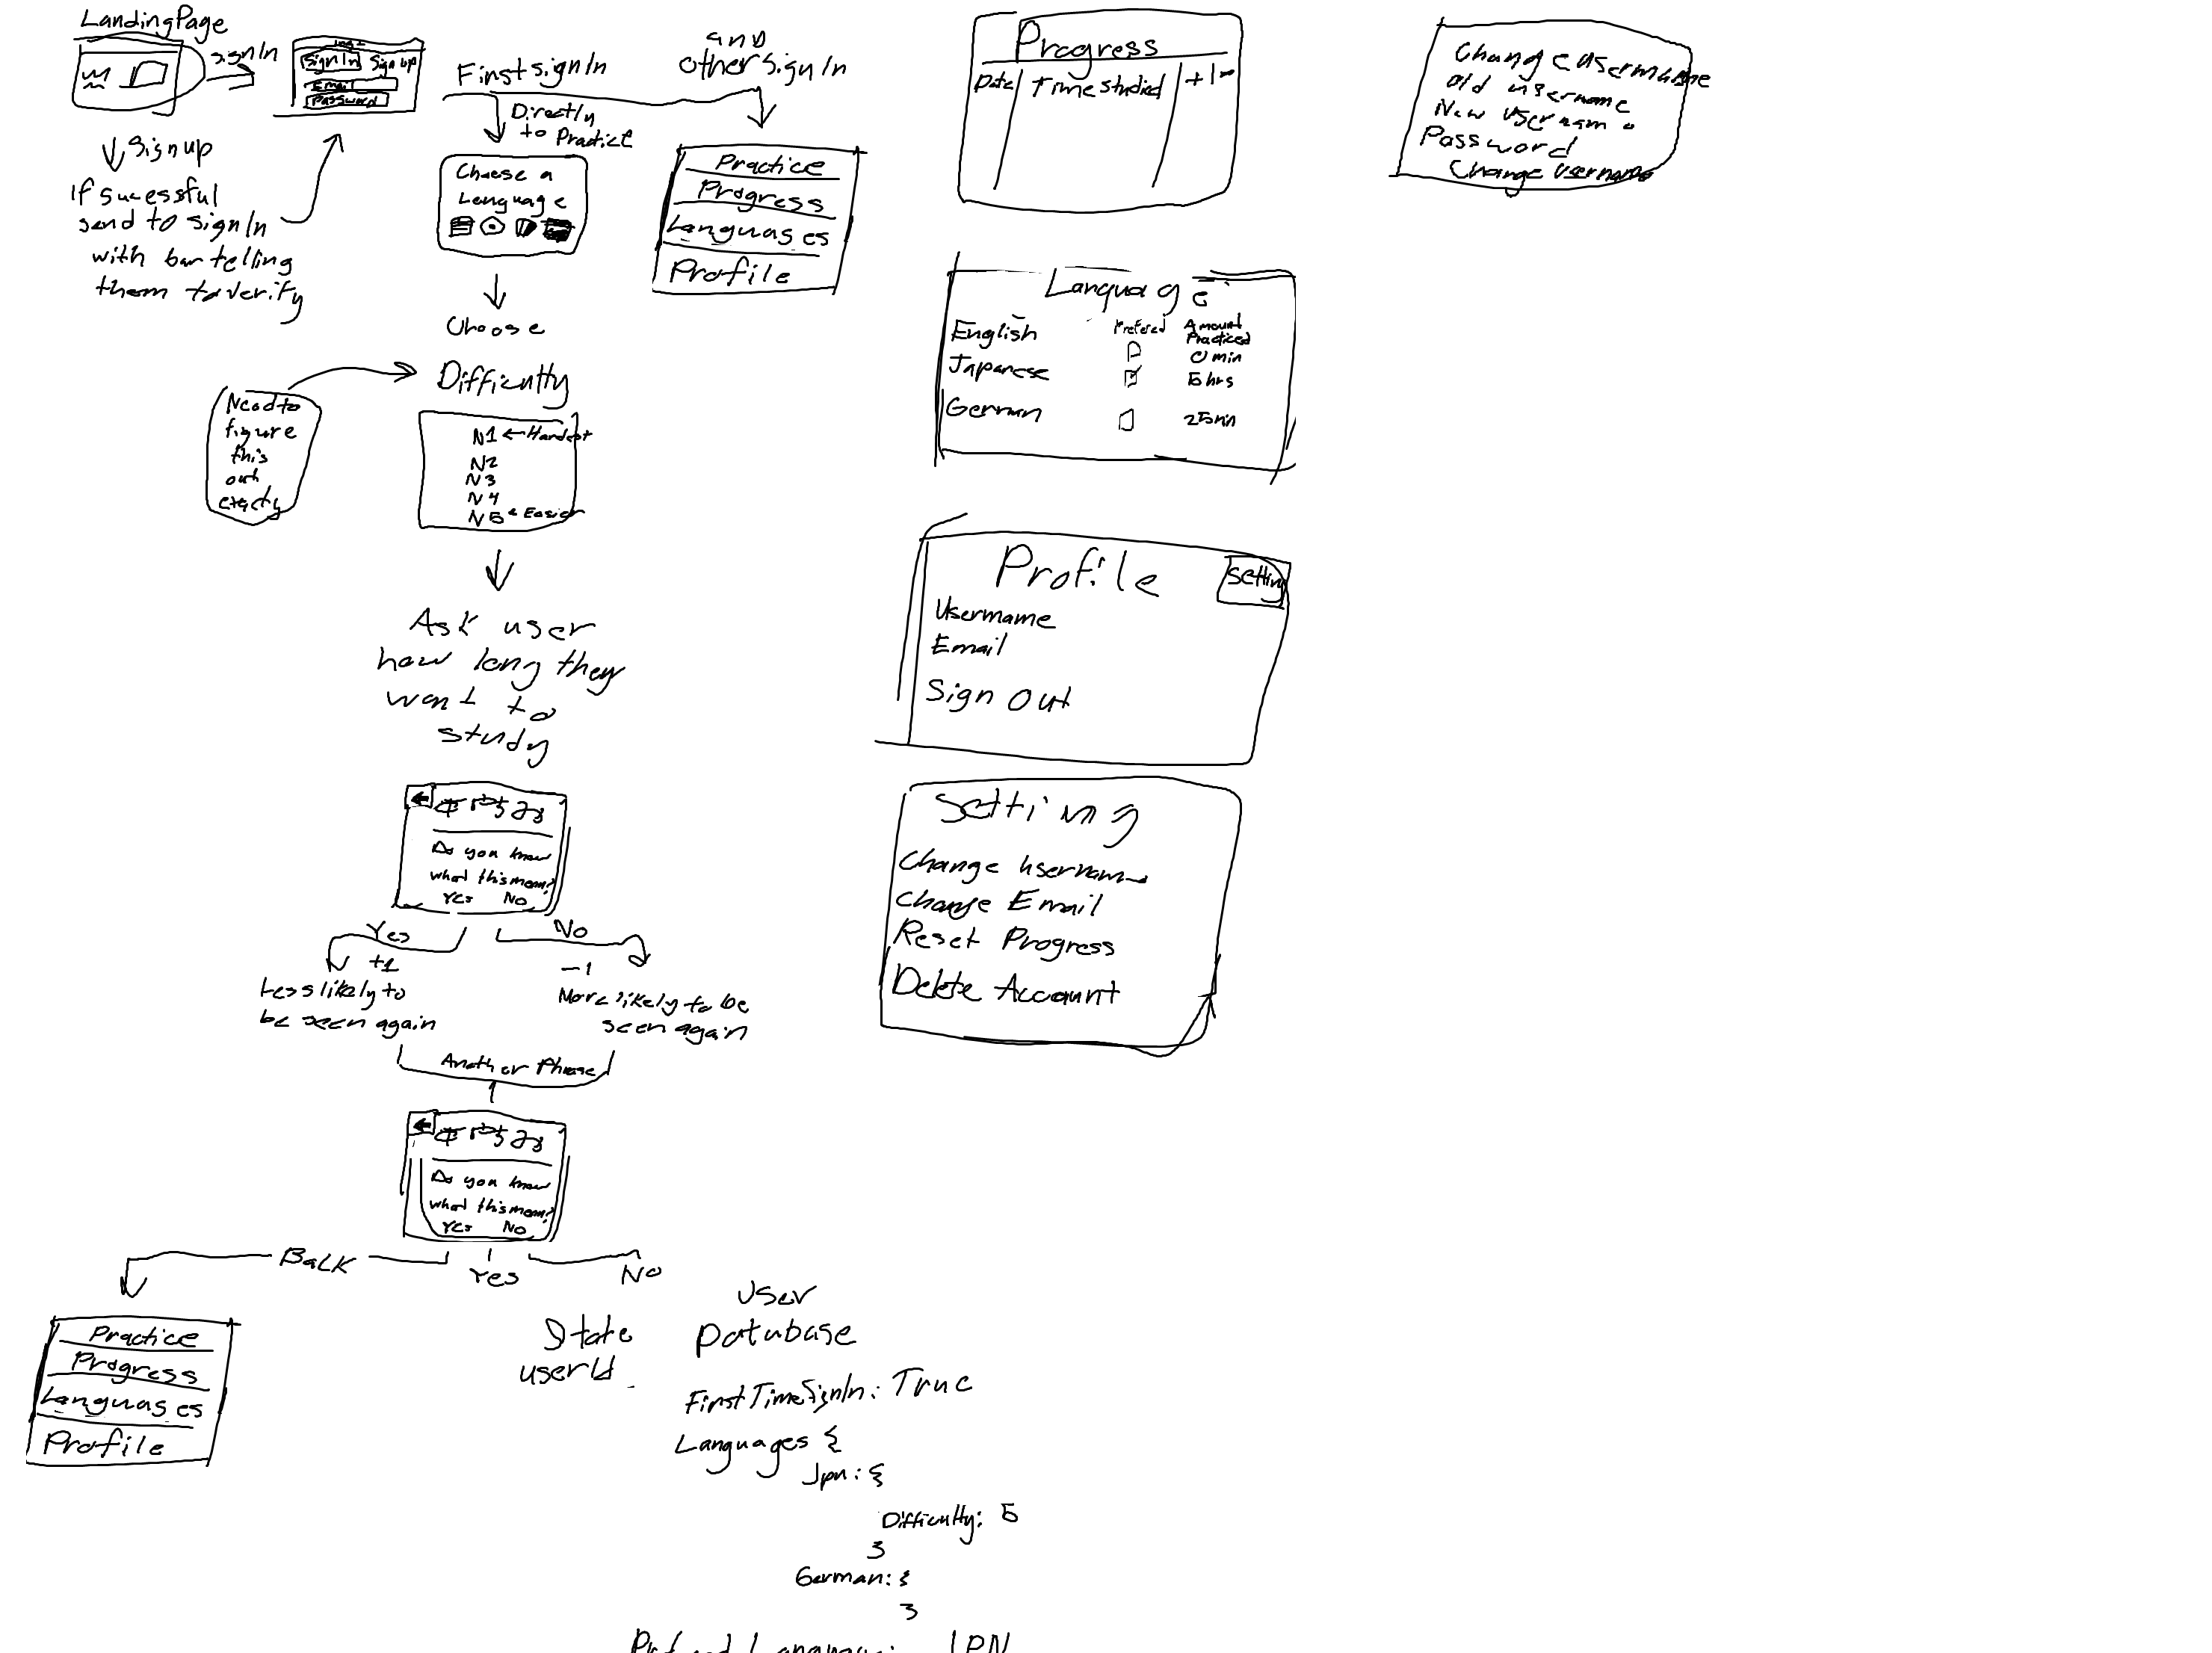 Landing Page
sign In
Sign In Sign up
Email
Password
Sign up
If sucessful
send to sign In
with bar telling
them to verify
First sign In
and
other sign In
Directly
to Practice
Choose a
Language
Practice
Progress
Languages
Profile
Choose
Difficulty
Need to
figure
this
out
exactly
N1 ← Hardest
N2
N3
N4
N5 ← Easier
Ask user
how long they
want to
study
←
Do you know
what this mean?
Yes No
Yes
+1
Less likely to
be seen again
No
-1
More likely to be
seen again
Another Phrase
←
Do you know
what this mean?
Yes No
Back
Yes
No
Practice
Progress
Languages
Profile
State
userId
User
Database
FirstTimeSignIn: True
Languages {
Jpn: {
Difficulty: 5
}
German: {
}
JPN
Progress
Date Time studied +/-
Language
Prefered Amount Practiced
English 0 min
Japanese 5 hrs
German 25 min
Profile
Setting
Username
Email
Sign Out
Setting
Change Username
Change Email
Reset Progress
Delete Account
Change Username
Old username
New Username
Password
Change Username